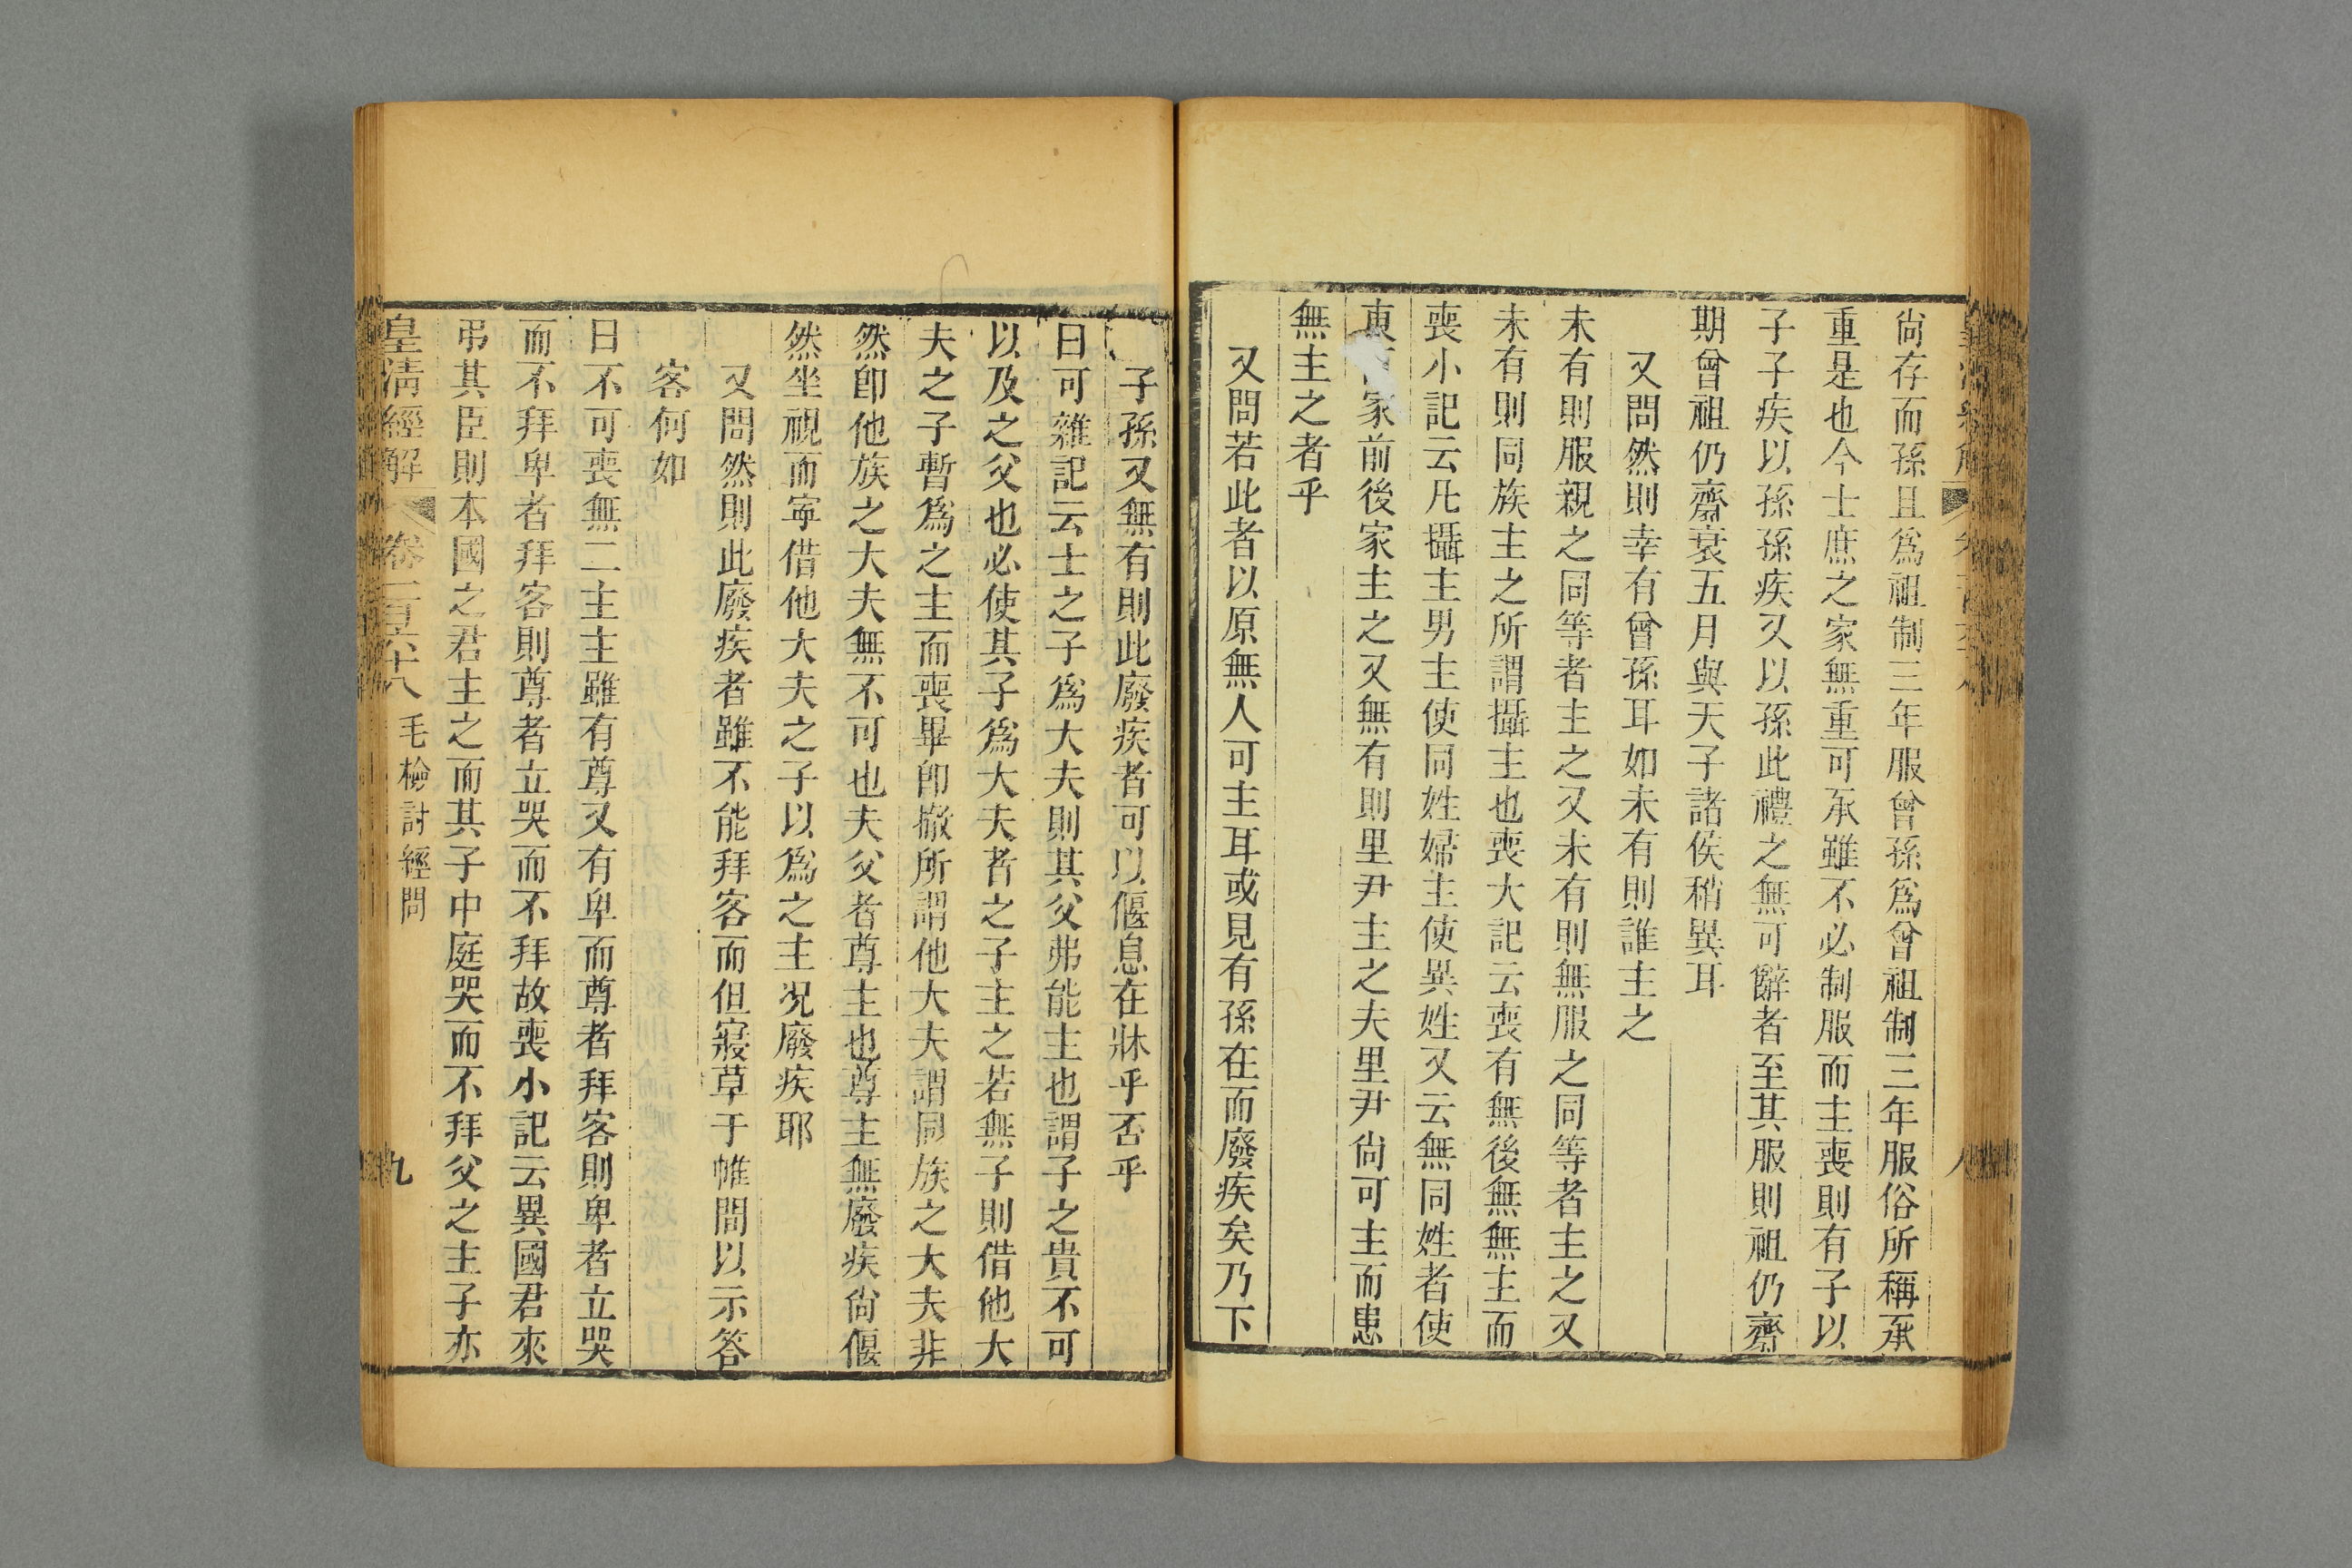 尙存而孫且爲祖制三年服曾孫爲曾祖制三年服俗所稱承
重是也今士庶之家無重可承雖不必制服而主喪則有子以
子子疾以孫孫疾又以孫此禮之無可辭者至其服則祖仍齊
期曾祖仍齊衰五月與天子諸侯稍異耳
又問然則幸有曾孫耳如未有則誰主之
未有則服親之同等者主之又未有則無服之同等者主之又
未有則同族主之所謂攝主也喪大記云喪有無後無無主而
喪小記云凡攝主男主使同姓婦主使異姓又云無同姓者使
東家前後家主之又無有則里尹主之夫里尹尙可主而患
無主之者乎
又問若此者以原無人可主耳或見有孫在而廢疾矣乃下
子孫又無有則此廢疾者可以偃息在牀乎否乎
曰可雜記云士之子爲大夫則其父弗能主也謂子之貴不可
以及之父也必使其子爲大夫者之子主之若無子則借他大
夫之子暫爲之主而喪畢卽撤所謂他大夫謂同族之大夫非
然卽他族之大夫無不可也夫父者尊主也尊主無廢疾尙偃
然坐視而寧借他大夫之子以爲之主况廢疾耶
又問然則此廢疾者雖不能拜客而但寢草于帷間以示答
客何如
曰不可喪無二主主雖有尊又有卑而尊者拜客則卑者立哭
而不拜卑者拜客則尊者立哭而不拜故喪小記云異國君來
弔其臣則本國之君主之而其子中庭哭而不拜父之主子亦
皇淸經解 卷一百六十八 毛檢討經問 九